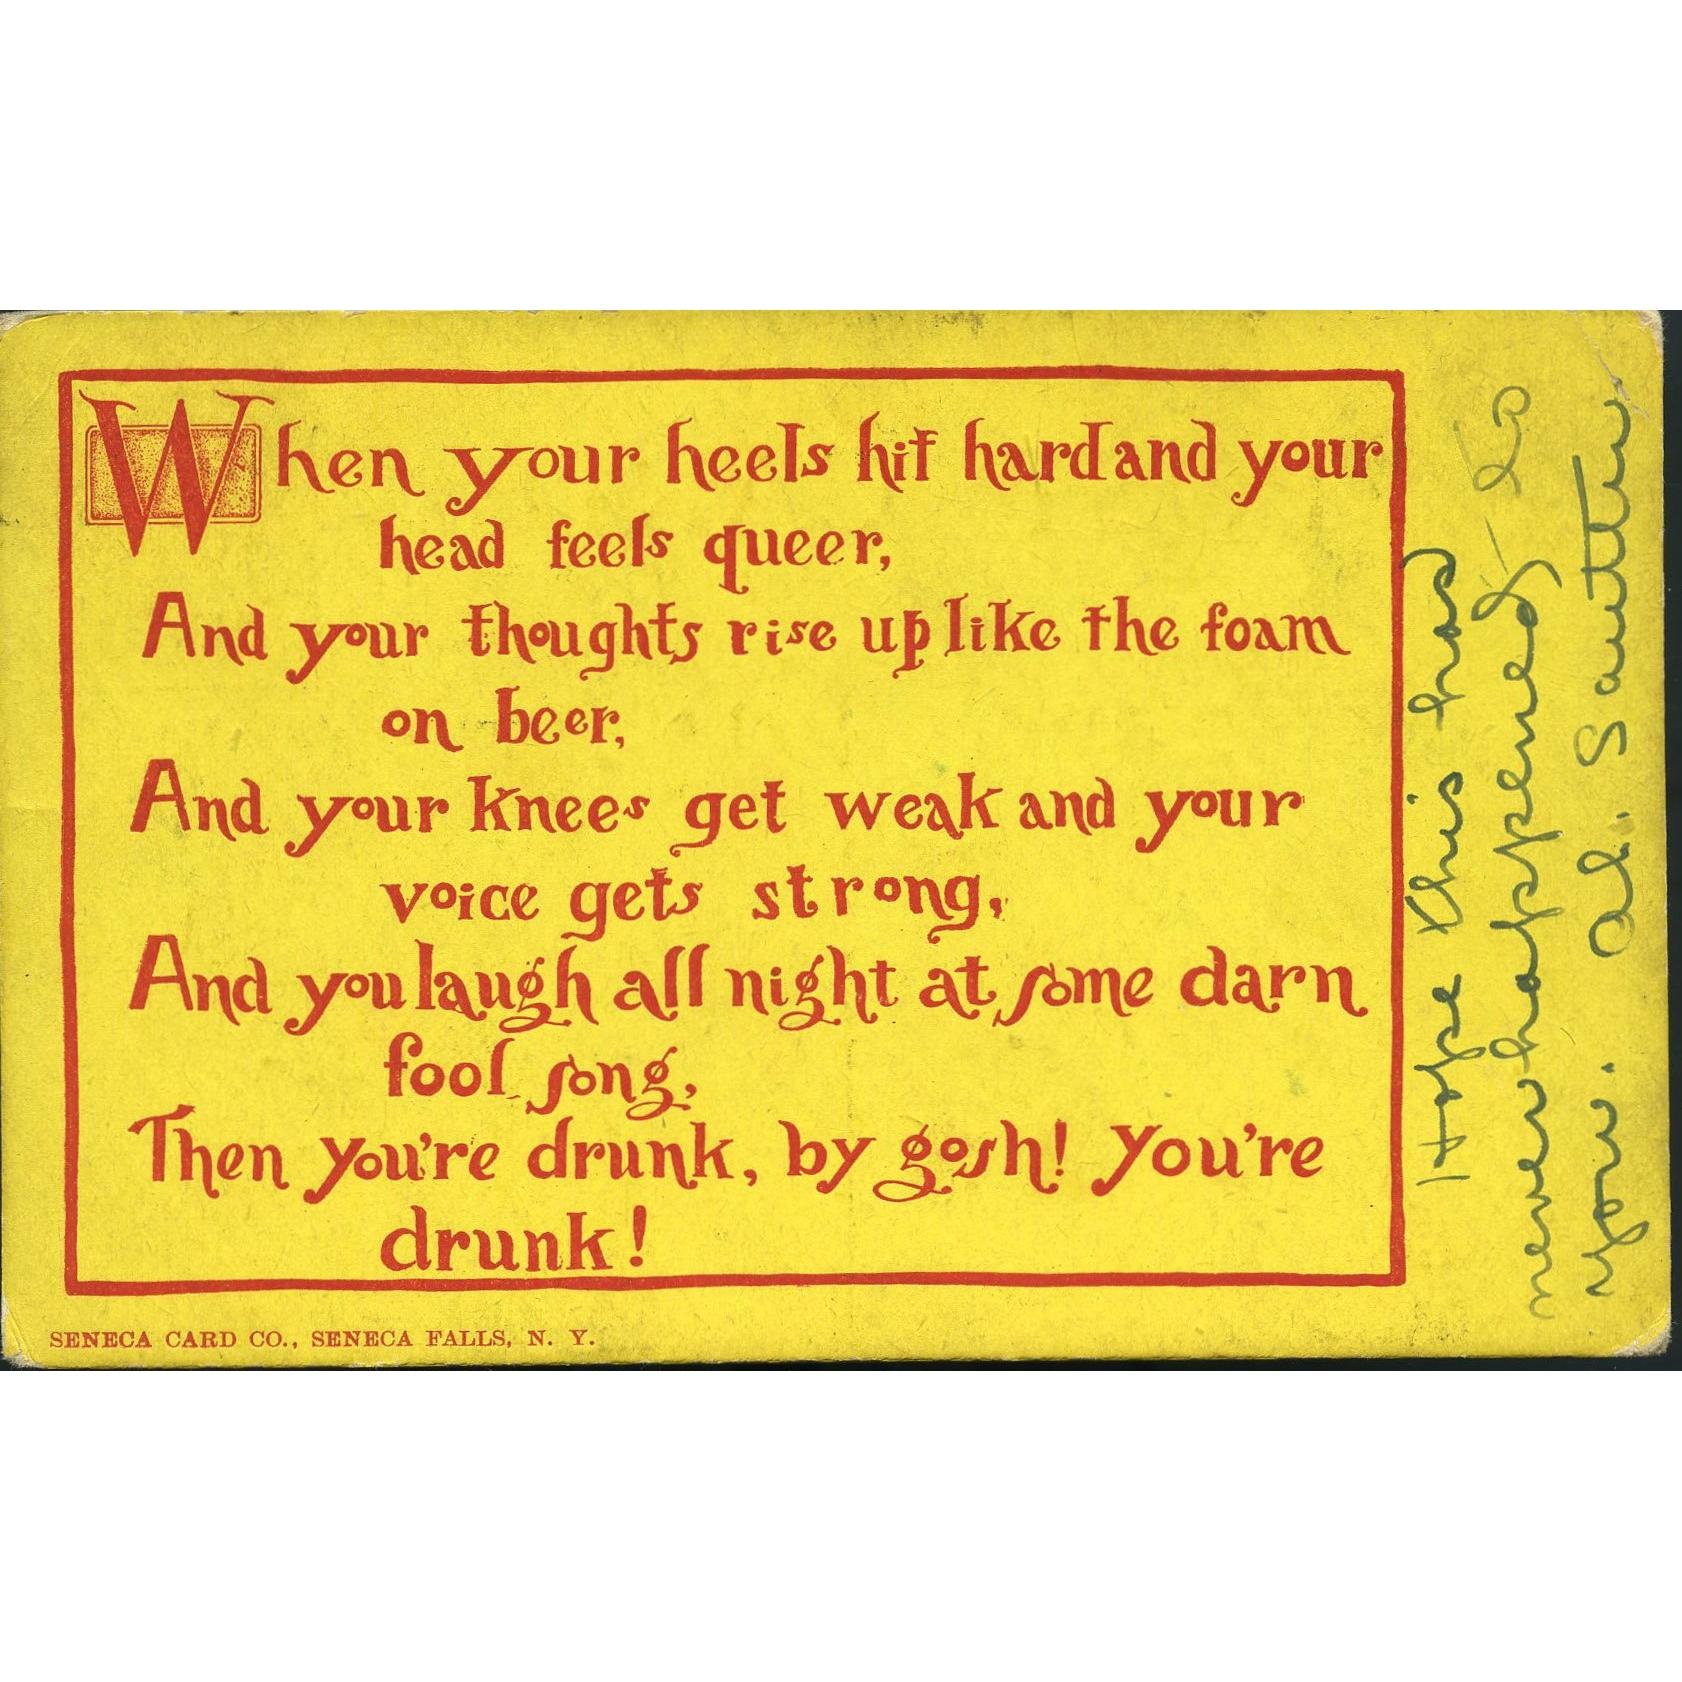 When your heels hit hard and your
head feels queer,
And your thoughts rise up like the foam
on beer,
And your knees get weak and your
voice gets strong,
And you laugh all night at some darn
fool song,
Then you're drunk, by gosh! you're
drunk!
SENECA CARD CO., SENECA FALLS, N. Y.
Hope this has
never happened to
you. Al. Sautter